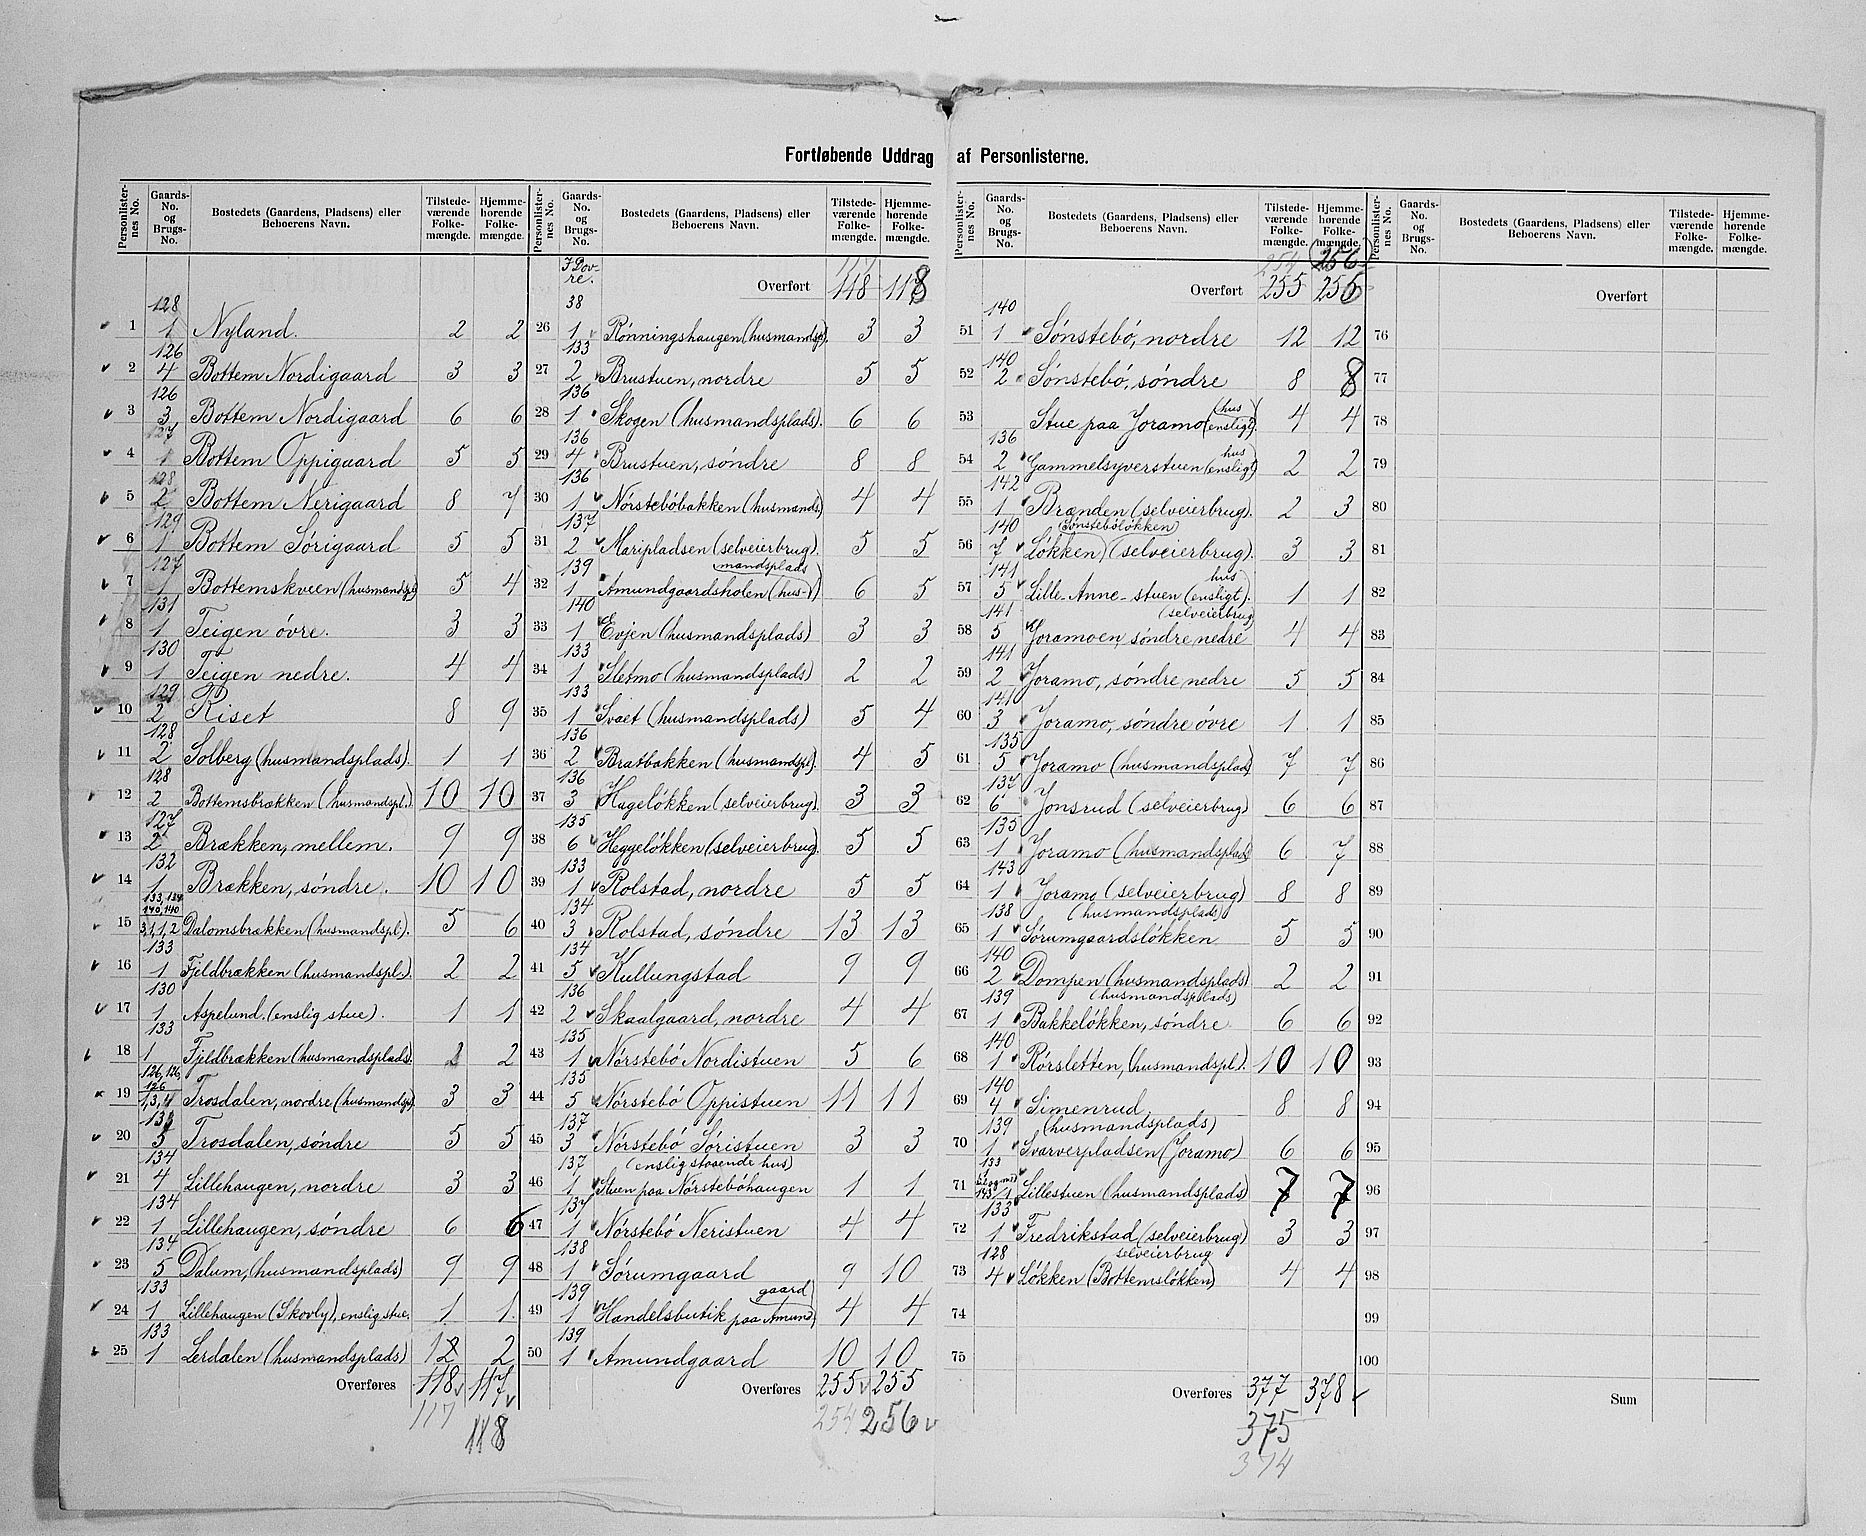 Fortløbende Uddrag af Personlisterne.
Personlisternes No. Gaards-No. og Brugs-No. Bostedets (Gaardens, Pladsens) eller Beboerens Navn. Tilstedeværende Folkemængde. Hjemmehørende Folkemængde.
1 128 1 Nyland. 2 2
2 126 4 Bottem Nordigaard 3 3
3 126 3 Bottem Nordigaard 6 6
4 127 1 Bottem Oppigaard 5 5
5 128 2 Bottem Nerigaard 8 7
6 129 1 Bottem Sörigaard 5 5
7 127 1 Bottemskveen (husmandspl) 5 4
8 131 1 Teigen övre. 3 3
9 130 1 Teigen nedre. 4 4
10 129 2 Riset 8 9
11 128 2 Solberg (husmandsplads). 1 1
12 128 2 Bottemsbrækken (husmandspl.) 10 10
13 127 2 Brækken, mellem. 9 9
14 132 1 Brækken, söndre. 10 10
15 133, 134 140, 140 3,1,1,2 Dalomsbrækken (husmandspl). 5 6
16 133 1 Fjeldbrækken (husmandspl.) 2 2
17 130 1 Aspelund. (enslig stue). 1 1
18 133 1 Fjeldbrækken (husmandsplads). 2 2
19 126, 126, 126 1,3,4 Trosdalen, nordre (husmandspl) 3 3
20 133 5 Trosdalen, söndre 5 5
21 134 4 Lillehaugen, nordre 3 3
22 134 1 Lillehaugen, söndre 6 6
23 134 5 Dalum, (husmandsplads) 9 9
24 133 1 Lillehaugen (Skovly), enslig stue. 1 1
25 133 1 Lerdalen (husmandsplads) 2 2
Overføres 118 117
117 118
Personlisternes No. Gaards-No. og Brugs-No. Bostedets (Gaardens, Pladsens) eller Beboerens Navn. Tilstedeværende Folkemængde. Hjemmehørende Folkemængde.
I Dovre. Overført 117 118 118
26 38 1 Rönningshaugen (husmandspl). 3 3
27 133 2 Brustuen, nordre 5 5
28 136 1 Skogen (husmandsplads). 6 6
29 136 4 Brustuen, söndre 8 8
30 136 1 Nörstebóbakken (husmands.) 4 4
31 137 2 Maripladsen (selveierbrug). 5 5
32 139 1 Amundgaardsholen (husmandsplads) 6 5
33 140 1 Evjen (husmandsplads) 3 3
34 133 1 Sletmo (husmandsplads) 2 2
35 133 1 Svaet (husmandsplads) 5 4
36 136 2 Bratbakken (husmandspl). 4 5
37 136 3 Hageløkken (selveierbrug). 3 3
38 135 6 Heggelökken (selveierbrug). 5 5
39 133 1 Rolstad, nordre 5 5
40 134 3 Rolstad, söndre 13 13
41 134 5 Kullungstad 9 9
42 136 2 Skaalgaard, nordre 4 4
43 135 1 Nórstebó Nordistuen 5 6
44 135 5 Nórstebó Oppistuen 11 11
45 137 3 Nórstebó Söristuen 3 3
46 137 1 (enslig staaende hus) Stuen paa Nórstebóhaugen 1 1
47 137 1 Nórstebó Neristuen 4 4
48 138 1 Sörumgaard 9 10
49 139 1 Handelsbutik paa Amundgaard 4 4
50 139 1 Amundgaard 10 10
Overføres 255 255
254 256
Personlisternes No. Gaards-No. og Brugs-No. Bostedets (Gaardens, Pladsens) eller Beboerens Navn. Tilstedeværende Folkemængde. Hjemmehørende Folkemængde.
254 (256)
Overført 255 256
51 140 1 Sónstebó, nordre 12 12
52 140 2 Sónstebó, söndre 8 8
53 Stue paa Joramo (ensligt hus) 4 4
54 136 2 Gammelsyverstuen (ensligt hus) 2 2
55 142 1 Brænden (selveierbrug). 2 3
56 140 7 (Sónsteböløkken) Løkken (selveierbrug). 3 3
57 141 5 Lille-Anne-stuen (ensligt hus). 1 1
58 141 5 (selveierbrug) Joramoen, söndre nedre 4 4
59 141 2 Joramo, söndre nedre 5 5
60 141 3 Joramo, söndre övre 1 1
61 135 5 Joramo (husmandsplads) 7 7
62 137 6 Jonsrud (selveierbrug) 6 6
63 135 1 Joramo (husmandsplads) 6 7
64 143 1 Joramo (selveierbrug) 8 8
65 138 1 (husmandsplads) Sörumgaardslökken 5 5
66 140 2 Dompen (husmandsplads) 2 2
67 139 1 (husmandsplads) Bakkelökken, söndre 6 6
68 140 1 Rórsletten, (husmandspl). 10 10
69 140 4 Simenrud 8 8
70 139 1 (husmandsplads) Svarverpladsen (Joramo) 6 6
71 133 1 143/1 Lillestuen (husmandsplads) 7 7
72 133 1 Fredrikstad (selveierbrug) 3 3
73 128 4 selveierbrug Løkken (Bottemsløkken) 4 4
74
75
Overføres 377 378
375
374
Personlisternes No. Gaards-No. og Brugs-No. Bostedets (Gaardens, Pladsens) eller Beboerens Navn. Tilstedeværende Folkemængde. Hjemmehørende Folkemængde.
Overført
76
77
78
79
80
81
82
83
84
85
86
87
88
89
90
91
92
93
94
95
96
97
98
99
100
Sum